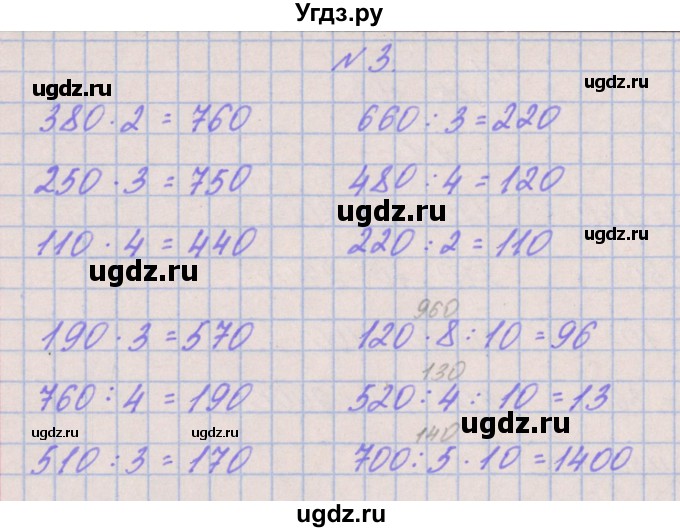 Угдз.ру
N 3.
ugdz.ru ugdz.ru
380 · 2 = 760 660 : 3 = 220
250 · 3 = 750 480 : 4 = 120
ugdz.ru
110 · 4 = 440 220 : 2 = 110
ugdz.ru
ugdz.ru
960
190 · 3 = 570 120 · 8 : 10 = 96
130
760 : 4 = 190 520 : 4 : 10 = 13
ugdz.ru ugdz.ru 140 ugdz.ru
510 : 3 = 170 700 : 5 · 10 = 1400
ugdz.ru